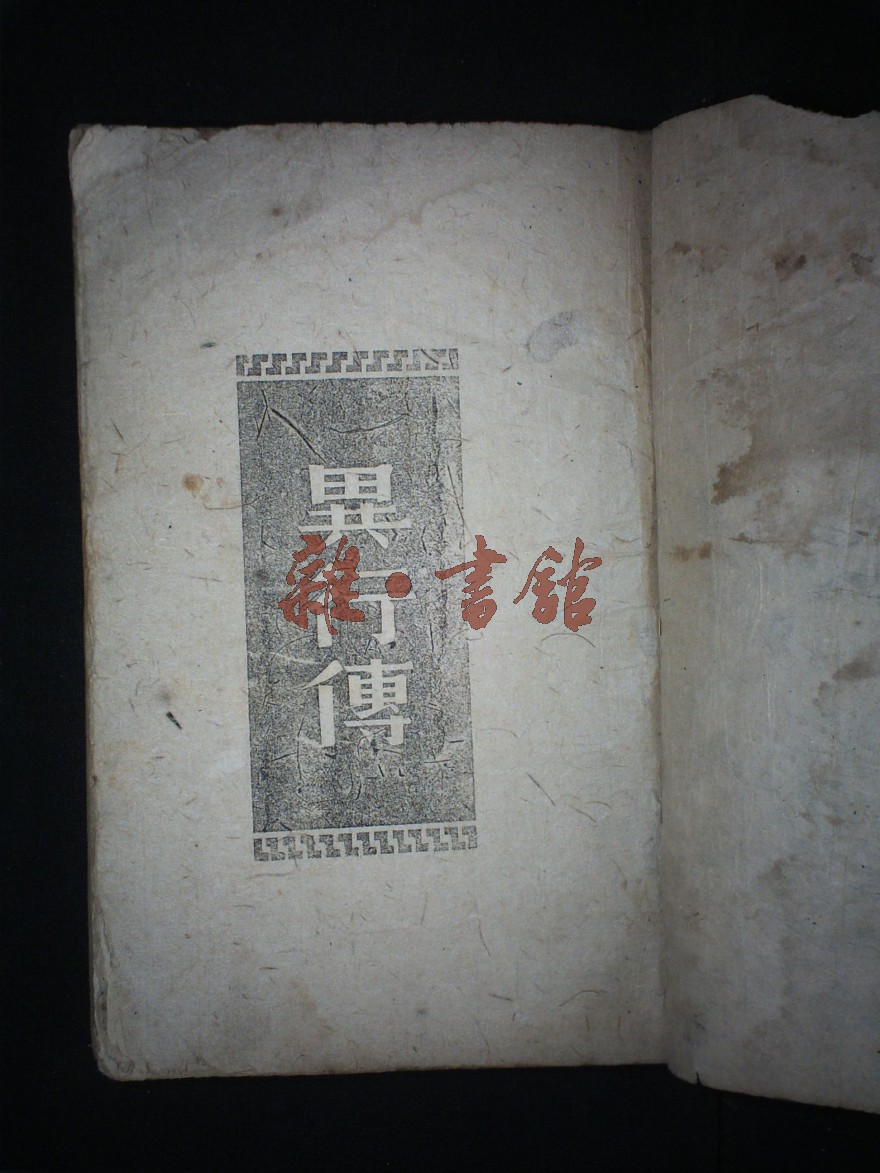 異行傳
雜·書館